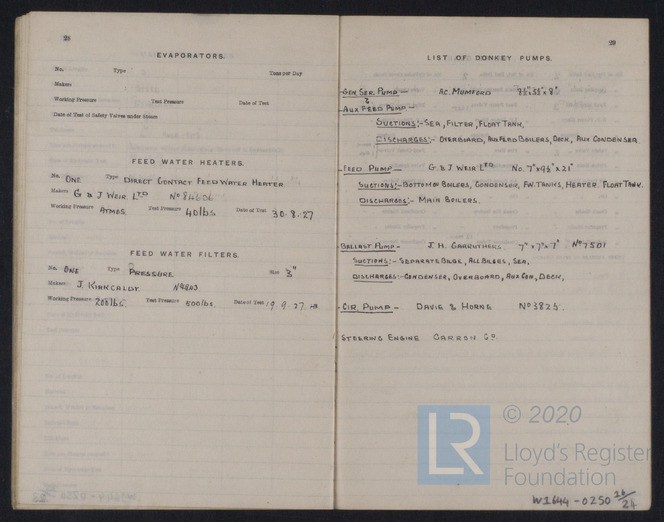 28
EVAPORATORS.
No. Type Tons per Day
Makers
Working Pressure Test Pressure Date of Test
Date of Test of Safety Valves under Steam
FEED WATER HEATERS.
No. ONE Type DIRECT CONTACT FEED WATER HEATER
Makers G & J WEIR LTD No 84606
Working Pressure ATMOS. Test Pressure 40lbs Date of Test 30.8.27
FEED WATER FILTERS.
No. ONE Type PRESSURE Size 3"
Makers J. KIRKCALDY. No 9803
Working Pressure 200lbs. Test Pressure 500lbs. Date of Test 19.9.27.
29
LIST OF DONKEY PUMPS.
-GEN. SER. PUMP- A.C. MUMFORD
&
-AUX FEED PUMP-
SUCTIONS:- SEA, FILTER, FLOAT TANK,
DISCHARGES:- OVERBOARD, AUX FEED BOILERS, DECK, AUX CONDENSER.
-FEED PUMP- G. & J WEIR LTD No. 7"x9½"x21"
SUCTIONS:- BOTTOM OF BOILERS, CONDENSER, F.W. TANKS, HEATER. FLOAT TANK.
DISCHARGES:- MAIN BOILERS.
-BALLAST PUMP- J. H. CARRUTHERS. 7"x7"x7" No 7501
SUCTIONS:- SEPARATE BILGE, ALL BILGES, SEA,
DISCHARGES:- CONDENSER, OVERBOARD, AUX CON, DECK,
-CIR. PUMP- DAVIE & HORNE No 3825.
STEERING ENGINE CARRON Co.
LR
© 2020
Lloyd's Register
Foundation
W1644-0250 26/24